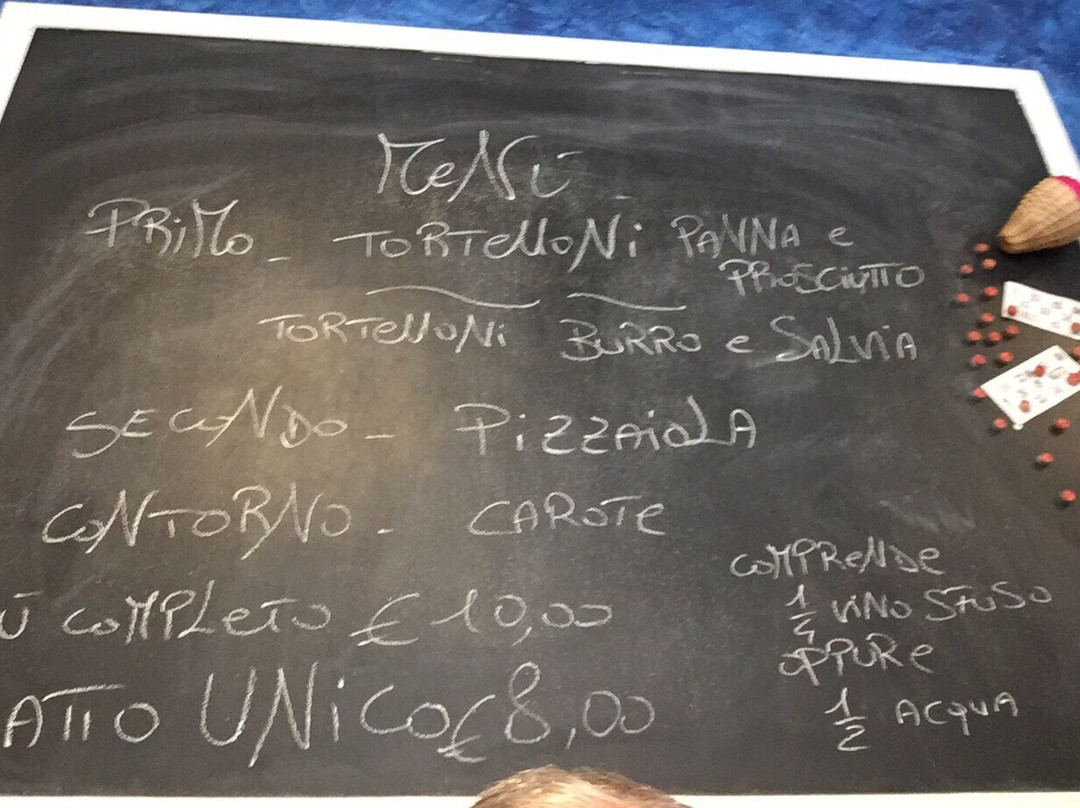 MENÙ
PRIMO - TORTELLONI PANNA e
PROSCIUTTO
TORTELLONI BURRO e SALVIA
SECONDO - PIZZAIOLA
CONTORNO - CAROTE
Ù COMPLETO € 10,00
ATTO UNICO € 8,00
COMPRENDE
1/4 VINO SFUSO
OPPURE
1/2 ACQUA